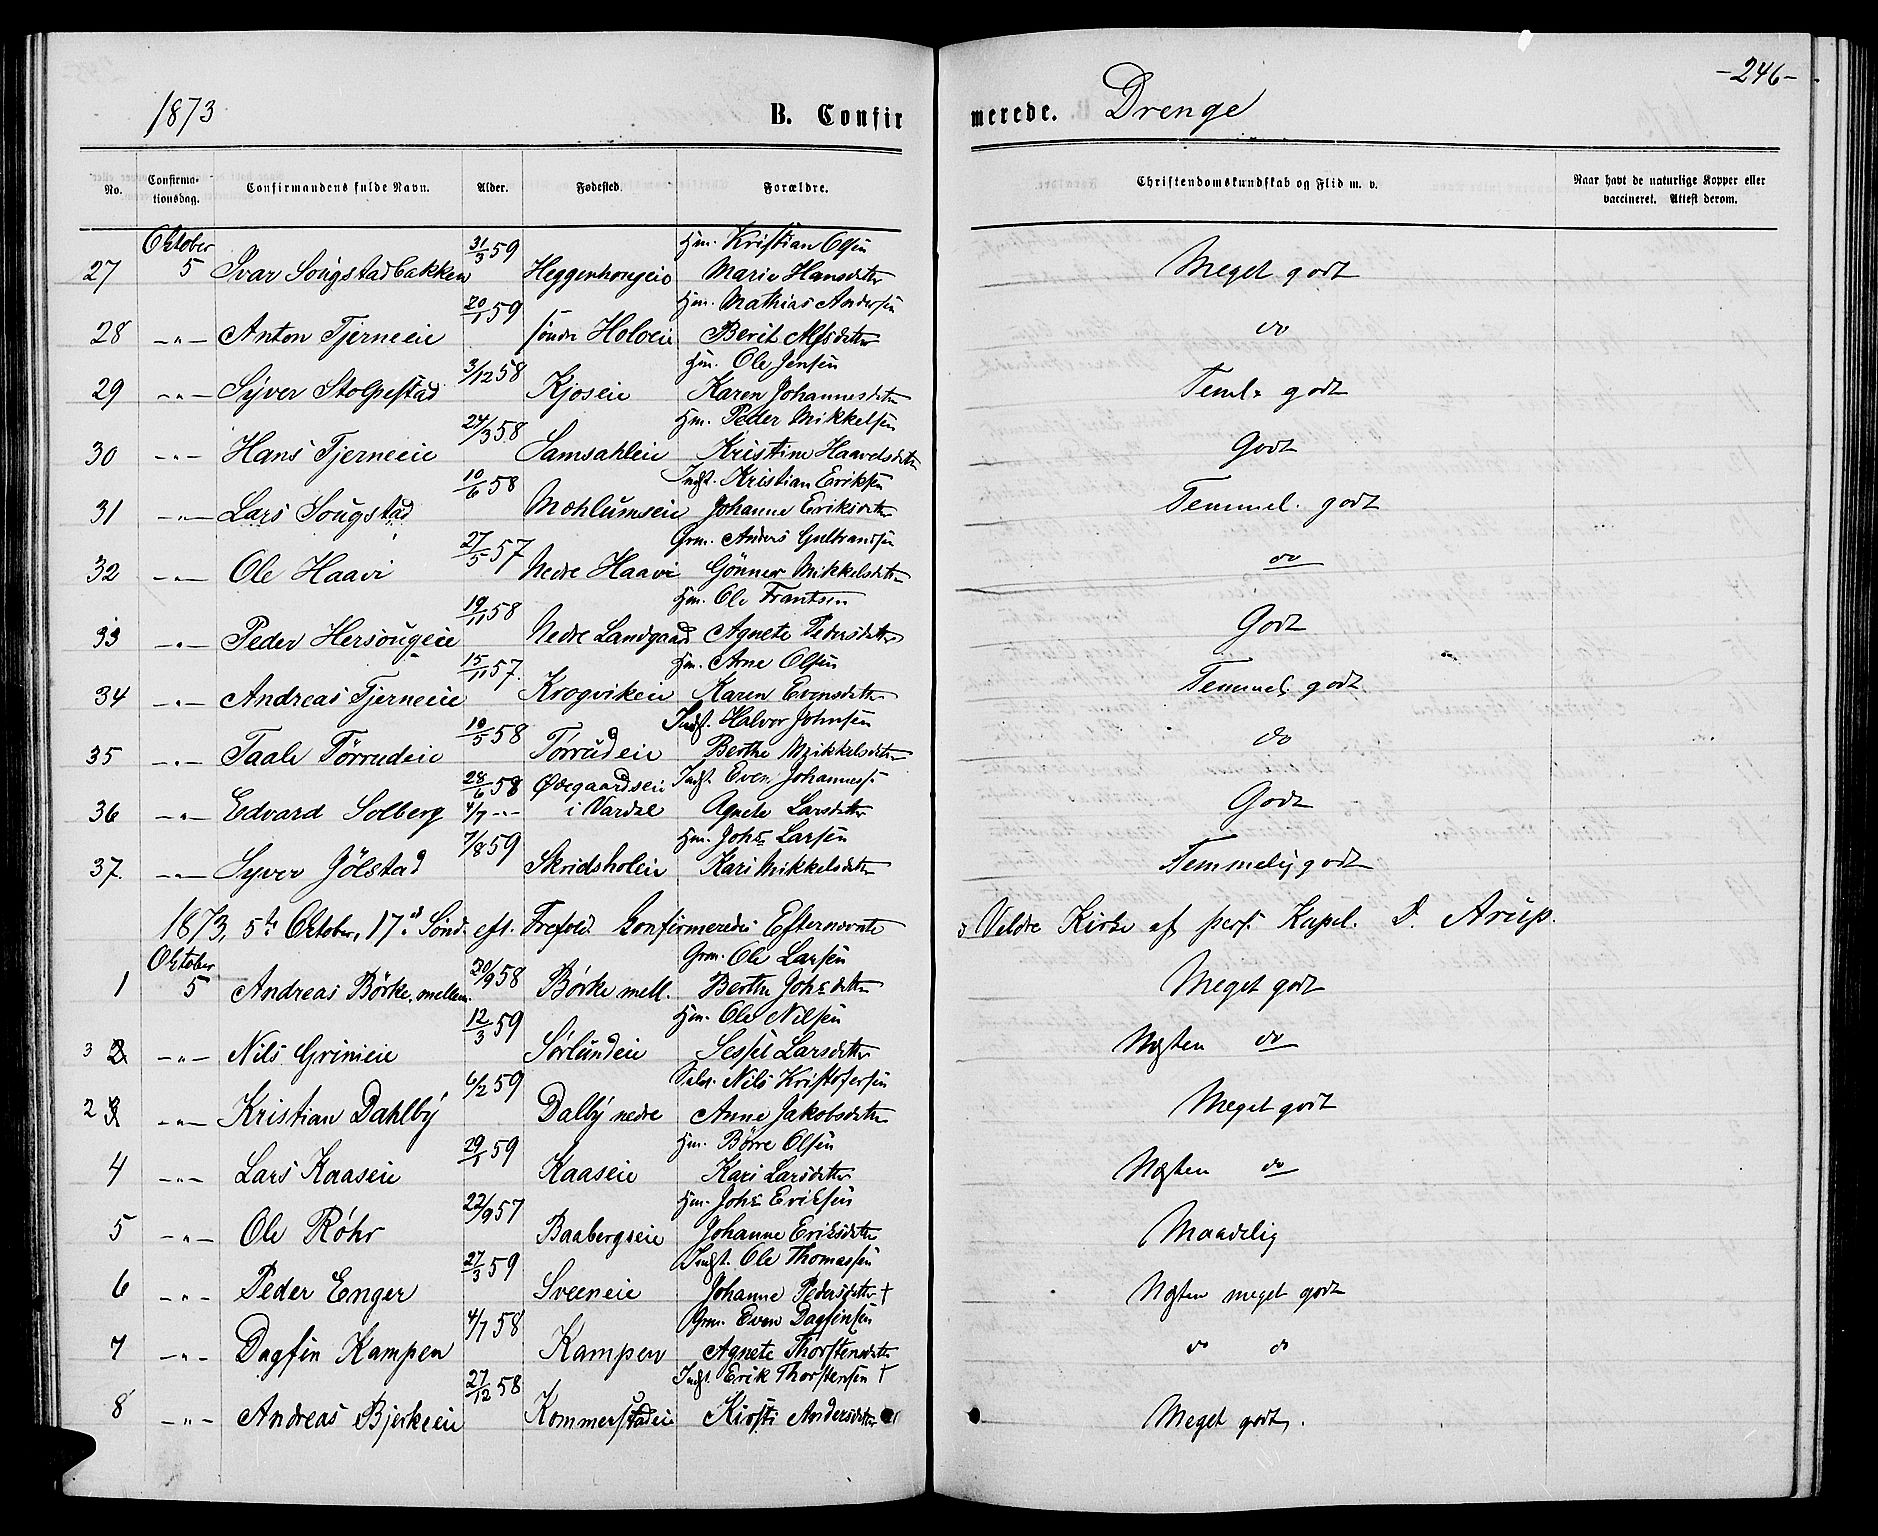 -246-
1873 B. Confirmerede. Drenge
No. Confirmationsdag. Confirmandens fulde Navn. Alder. Fødested. Forældre. Christendomskundskab og Flid m. v. Naar havt de naturlige Kopper eller vaccineret. Attest derom.
Oktober 31/3 59 Hm. Kristian Olsen
27 5 Ivar Sougstadbakken Heggenhougeie Marie Hansdatter Meget godt
20/1 59 Hm. Mathias Andersen
28 -"- Anton Tjerneeie søndre Holoeie Berit Alfsdatter do
3/12 58 Hm. Ole Jensen
29 -"- Syver Stolpestad Kjoseie Karen Johannesdatter Teml. godt
24/3 58 Hm. Peder Mikkelsen
30 -"- Hans Tjerneeie Samsahleie Kristine Haavelsdatter Godt
10/6 58 Indst. Kristian Eriksen
31 -"- Lars Sougstad Mohlumseie Johanne Eriksdatter Temmel. godt
27/5 57 Grm. Anders Gulbrandsen
32 -"- Ole Haavi Nedre Haavi Gønner Mikkelsdatter do
19/11 58 Hm. Ole Frantsen
33 -"- Peder Hersougeie Nedre Landgaard Agnete Pedersdatter Godt
15/11 57. Hm. Arne Olsen
34 -"- Andreas Tjerneeie Krogvikeie Karen Evensdatter Temmel. godt.
10/5 58 Indst. Halvor Johnsen
35 -"- Taale Tørrudeie Torrudeie Berthe Mikkelsdatter do
28/6 58 Øvegaardseie Indst. Even Johanness.
36 -"- Edvard Solberg 4/7 -"- i Vardal Agnete Larsdatter Godt
7/8 59 Hm. Johs Larsen
37. -"- Syver Jølstad Skridsholeie Kari Mikkelsdatter Temmelig godt
1873, 5te Oktober, 17de Sønd. eft. Trefold. Konfirmeredes Efternævnte i Veldre Kirke af pers. Kapel. D. Arup.
Oktober 20/9 58 Grm. Ole Larsen
1 5 Andreas Børke, mellem. Børke mell. Berthe Johsdatter Meget godt
12/3 59 Hm. Ole Nilsen
3 2 -"- Nils Grimeie Sørlundeie Sessel Larsdatter Næsten do
6/2 59 Selv. Nils Kristofersen
2 3 -"- Kristian Dahlby Dalby nedre Anne Jakobsdatter Meget godt
29/1 59 Hm. Børre Olsen
4 -"- Lars Kaaseie Kaaseie Kari Larsdatter Næsten do
22/9 57 Hm. Johs Eriksen
5 -"- Ole Røhr Baabergseie Johanne Eriksdatter Maadelig
27/3 59 Indst. Ole Thomassen
6 -"- Peder Enger Sveeneie Johanne Pedersdatter † Næsten meget godt
4/7 58 Grm. Even Dagfinsen
7 -"- Dagfin Kampen Kampen Agnete Thorstensdatter do do
27/12 58 Indst. Erik Thorstensen †
8 -"- Andreas Bjerkeeie Kommerstadeie Kirsti Andersdatter Meget godt.